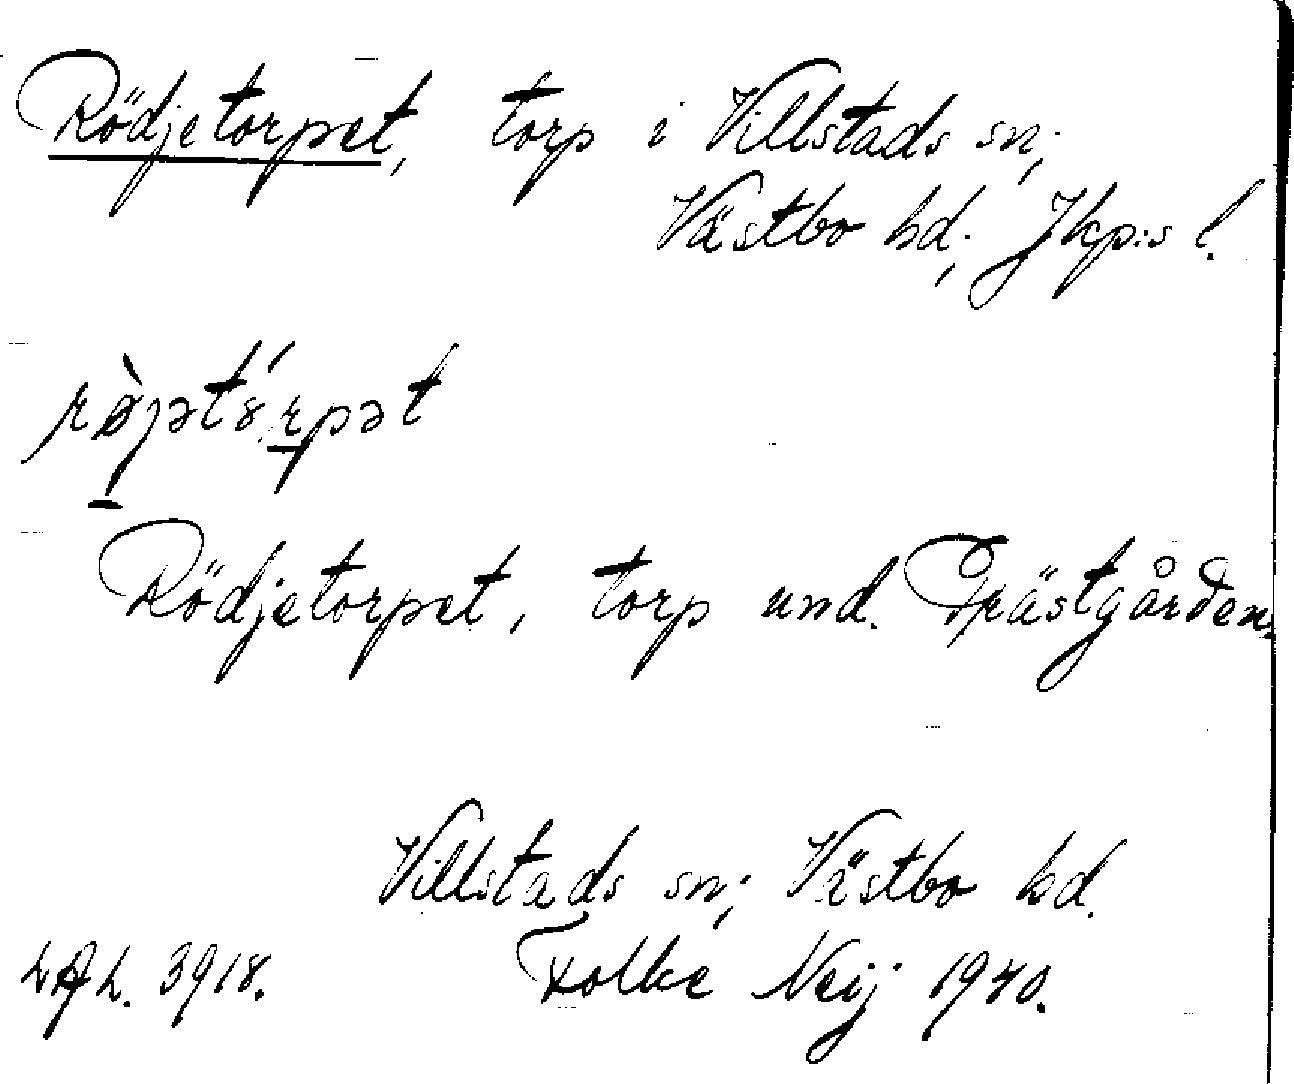 Rödjetorpet, torp i Villstads sn;
Västbo hd; Jkp:s l.
Rödjetorpet, torp und. Prästgården,
Villstads sn; Västbo hd.
3918. Folke Neij 1940.